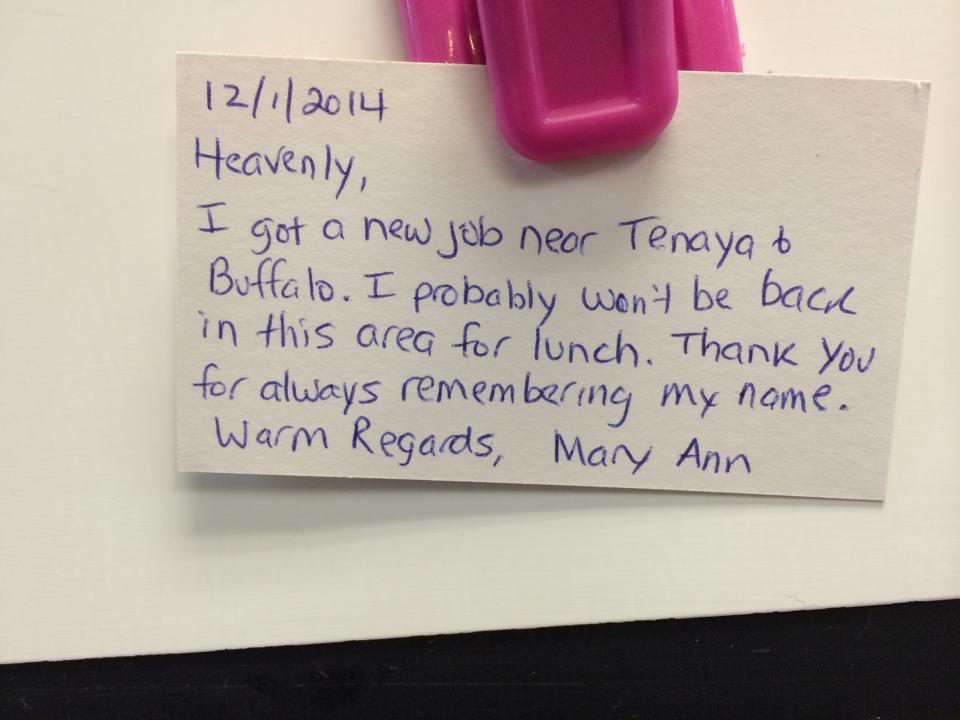 12/1/2014
Heavenly,
I got a new job near Tenaya &
Buffalo. I probably won't be back
in this area for lunch. Thank you
for always remembering my name.
Warm Regards, Mary Ann